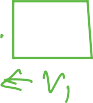 ← V₁